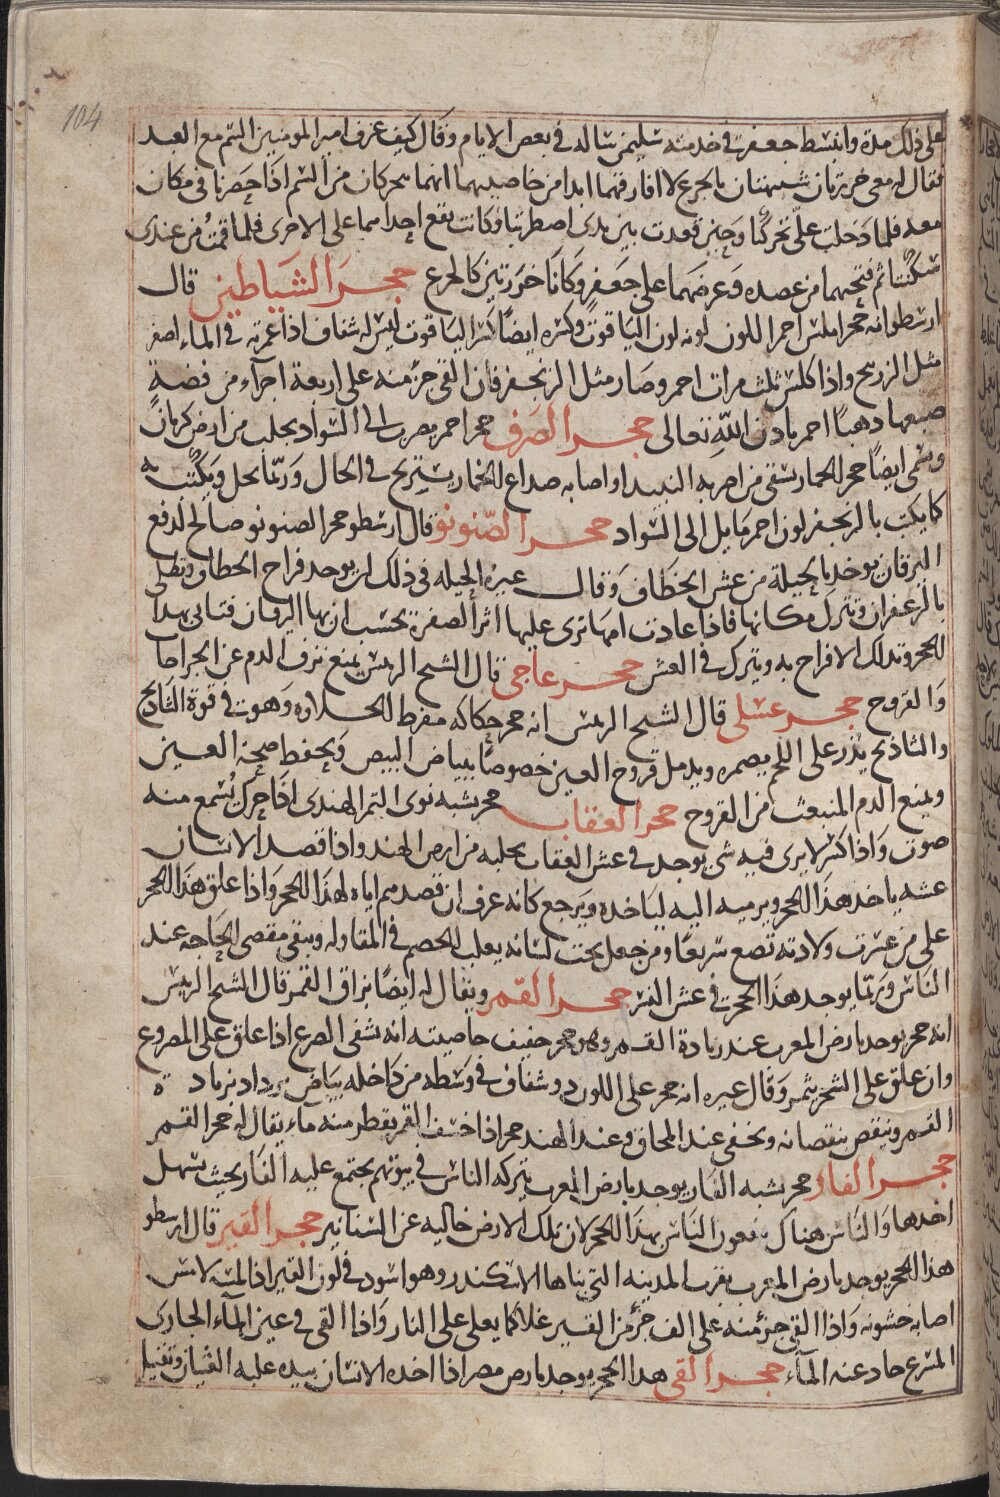 104
على ذلك مدة وانبسط جعفر في خدمته سليمن ساله في بعض الايام وقال كيف عرف امير المومنين السم مع العبد
فقال له معى خرزتان شبيهتان بالجزع لا افارقهما ابدا من خاصيتهما انهما يتحركان من السم اذا حضرنا في مكان
معه فلما دخلت علي تحركتا وحين قعدت بين يدى اضطربتا وكانت تقع احداهما على الاخرى فلما قمت من عندى
سكنتا ثم فتحهما من عضده وعرضهما على جعفر وكانتا خرزتين كالجزع حجر الشياطين قال
ارسطو انه حجر املس احمر اللون لونه لون الياقوت وكسره ايضا كسر الياقوت ليس له شفاف اذا غمرته في الماء اصفر
مثل الزرنيخ واذا كلس ثلث مرات احمر وصار مثل الزنجفر فان القى جزء منه على اربعة اجزآء من فضة
صبغها ذهبا احمر باذن الله تعالى حجر الصرف حجر احمر يضرب الى السواد يجلب من ارض كرمان
وسمى ايضا حجر الخمار يسقى من اضر به النبيذ او اصابه صداع الخمار يستريح في الحال وربما يحل ويكتب به
كما يكتب بالزنجفر لون احمر مايل الى السواد حجر الصنونو قال ارسطو حجر الصنونو صالح لدفع
اليرقان يوخذ بالحيلة من عش الخطاف وقال غيره الحيله في ذلك ان يوخذ فراخ الخطاف وتطلى
بالزعفران وتترك مكانها فاذا عادت امها ترى عليها اثر الصفرة تحسب ان بها اليرقان فتاتى بهذا
الحجر وتدلك الافراخ به ويترك في العش حجر عاجى قال الشيخ الرئيس يمنع نزف الدم عن الجراحات
والقروح حجر عسلى قال الشيخ الرئيس انه حجر حكاكه مفرط الحلاوه وهو في قوة الشاذنج
والشاذنج يذر على اللحم يضمره ويدمل قروح العين خصوصا ببياض البيض ويحفظ صحة العين
ويمنع الدم المنبعث من القروح حجر العقاب حجر يشبه نوى التمر الهندى اذا حرك يسمع منه
صوت واذا كسر لا يرى فيه شى يوجد في عش العقاب يجلبه من ارض الهند واذا قصد الانسان
عشه ياخذ هذا الحجر ويرميه اليه لياخذه ويرجع كانه عرف ان قصدهم اياه لهذا الحجر واذا علق هذا الحجر
على من عسرت ولادته تضع سريعا ومن جعل تحت لسانه يغلب الخصم في المقاوله ويبقى مقضى الحاجه عند
الناس وربما يوجد هذا الحجر في عش النسر حجر القمر ويقال له ايضا بزاق القمر قال الشيخ الرئيس
انه حجر يوجد بارض المغرب عند زيادة القمر وهو حجر خفيف خاصيته انه يشفى الصرع اذا علق على المصروع
وان علق على الشجر يثمر وقال غيره انه حجر على اللون ذو شفاف في وسطه من داخله بياض يزداد بزيادة
القمر وينقص بنقصانه ويخفى عند المحاق وعند الهند حجر اذا خسف القمر يقطر منه مآء يقال له حجر القمر
حجر الفار حجر يشبه الفار يوجد بارض المغرب يتركه الناس في بيوتهم يجتمع عليه الفار بحيث يسهل
اخذها والناس هناك ينفعون الناس بهذا الحجر لان تلك الارض خاليه عن السنانير حجر القير قال ارسطو
هذا الحجر يوجد بارض المغرب بقرب المدينه التى بناها الاسكندر وهو اسود في لون القير اذا لمسه لامس
اصابه خشونه واذا القى جزء منه على الف جزء من القير غلا كما يغلى على النار واذا القى في عين المآء الجارى
المسرع حاد عنه المآء حجر القى هذا الحجر يوجد بارض مصر اذا اخذه الانسان بيده عليه الغثيان وتقيا